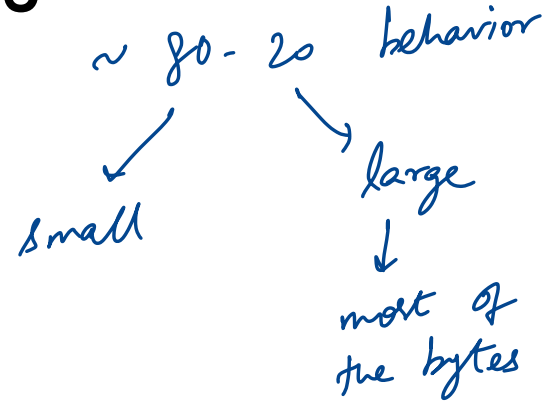 ~ 80-20 behavior
small
large
most of
the bytes